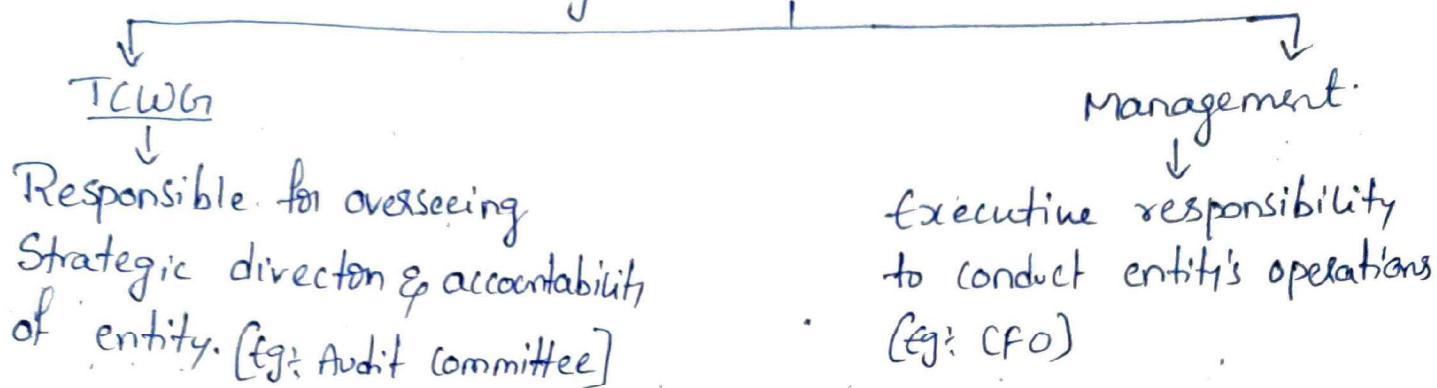 TCWG
Management.
Responsible for overseeing
Strategic directon & accountability
of entity. [Eg: Audit Committee]
Executive responsibility
to conduct entity's operations
(Eg: CFO)